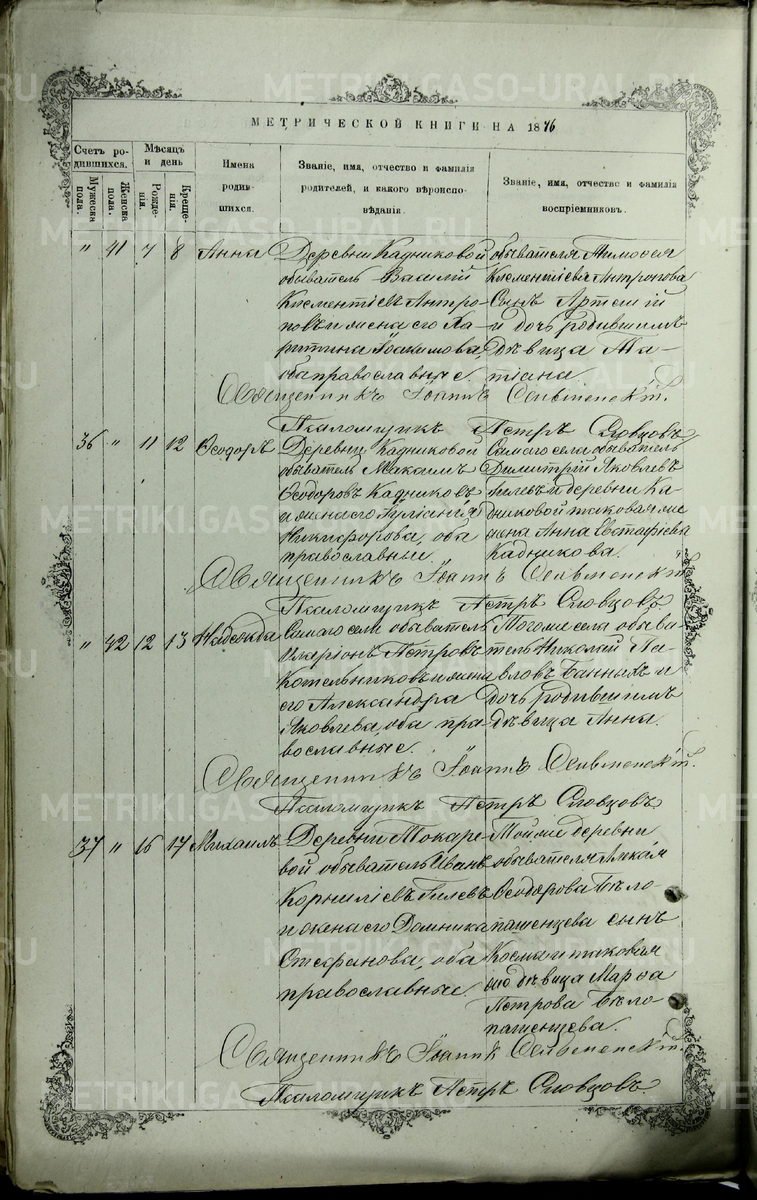 МЕТРИЧЕСКОЙ КНИГИ НА 1876
Счетъ родившихся.
Мужеска пола.
Женска пола.
Мѣсяцъ и день
Рожденія.
Крещенія.
Имена родившихся.
Званіе, имя, отчество и фамилія родителей, и какого вѣроисповѣданія.
Званіе, имя, отчество и фамилія воспріемниковъ.
" 41 7 8 Анна
Деревни Кадниковой
обыватель Василій
Клементіевъ Антро-
повъ и жена его Ха-
ритина Іоакимова
оба православные.
обывателя Тимофея
Клементіева Антропова
сынъ Артемій
и дочь родившимъ
дѣвица Та-
тіана.
Священникъ Іоаннъ
Псаломщикъ Петръ Словцовъ
36 " 11 12 Ѳеодоръ
Деревни Кадниковой
обыватель Максимъ
Ѳеодоровъ Кадниковъ
и жена его Іуліанія
Никифорова, оба
православные.
Самаго села обыватель
Димитрій Яковлевъ
Гилевъ и деревни Ка-
дниковой таковая же
жена Анна Евстафіева
Кадникова.
Священникъ Іоаннъ
Псаломщикъ Петръ Словцовъ
" 42 12 13 Надежда
Самаго села обыватель
Иларіонъ Петровъ
Котельниковъ и жена
его Александра
Яковлева, оба пра-
вославные.
Того же села обыва-
тель Николай Па-
вловъ Банныхъ и
дочь родившимъ
дѣвица Анна.
Священникъ Іоаннъ
Псаломщикъ Петръ Словцовъ
37 " 16 17 Михаилъ
Деревни Токаре-
вой обыватель Иванъ
Корниліевъ Гилевъ
и жена его Домника
Стефанова, оба
православные.
Той же деревни
обывателя
Ѳеодорова Бѣло-
пашенцева сынъ
Косма и таковая
же дѣвица Марѳа
Петрова Бѣло-
пашенцева.
Священникъ Іоаннъ
Псаломщикъ Петръ Словцовъ
METRIKI.GASO-URAL.RU